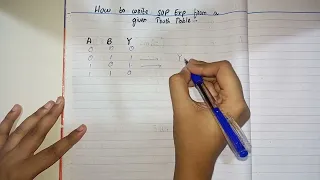 How to write SOP Exp from a
given Truth Table :-
A B Y
0 0 0
0 1 1
1 0 1
1 1 0
Y